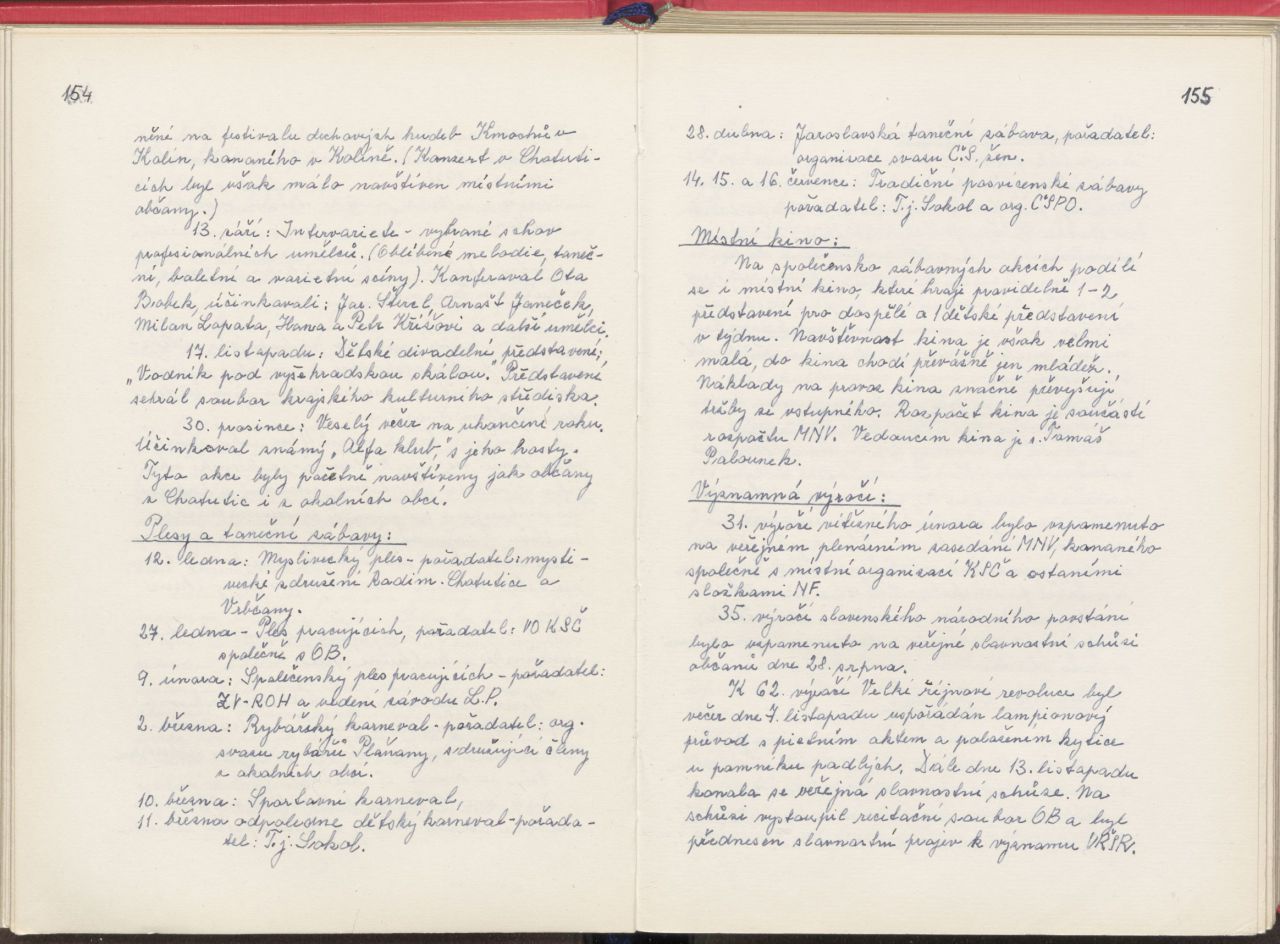 154
něné na festivalu dechových hudeb Kmochův
Kolín, konaného v Kolíně. (Koncert v Chotuti-
cích byl však málo navštíven místními
občany.)
13. září: Intervariete - vybrané schov
profesionálních umělců. (Oblíbené melodie, taneč-
ní, baletní a varietní scény). Konferoval Ota
Bobek, účinkovali: Jar. Štercl, Arnošt Janeček,
Milan Lopata, Hana a Petr Křížovi a další umělci.
17. listopadu: Dětské divadelní představení;
„Vodník pod vyšehradskou skálou." Představení
sehrál soubor krajského kulturního střediska.
30. prosince: Veselý večer na ukončení roku.
Účinkoval známý „Alfa klub", s jeho hosty.
Tyto akce byly početně navštíveny jak občany
z Chotutic i z okolních obce.
Plesy a taneční zábavy:
12. ledna: Myslivecký ples - pořadatel: mysli-
vecké sdružení Radim. Chotutice a
Vrbčany.
27. ledna - Ples pracujících, pořadatel: VO KSČ
společně s OB.
9. února: Společenský ples pracujících - pořadatel:
ZV-ROH a vedení závodu L.P.
2. března: Rybářský karneval - pořadatel: org.
svazu rybářů Plaňany, sdružující členy
z okolních obcí.
10. března: Sportovní karneval,
11. března odpoledne dětský karneval - pořada-
tel: T.j. Sokol.
155
28. dubna: Jaroslavská taneční zábava, pořadatel:
organizace svazu Č.S. žen.
14. 15. a 16. července: Tradiční posvícenské zábavy
pořadatel: T.j. Sokol a org. ČSPO.
Místní kino:
Na společensko zábavných akcích podílí
se i místní kino, které hraje pravidelně 1-2
představení pro dospělé a 1 dětské představení
v týdnu. Navštěvnost kina je však velmi
malá, do kina chodí převážně jen mládež.
Náklady na provoz kina značně převyšují
tržby ze vstupného. Rozpočet kina je součástí
rozpočtu MNV. Vedoucím kina je s. Tomáš
Palounek.
Významná výročí:
31. výročí vítězného února bylo vzpomenuto
na veřejném plenárním zasedání MNV, konaného
společně s místní organizací KSČ a ostaními
složkami NF.
35. výročí slovenského národního povstání
bylo vzpomenuto na veřejné slavnostní schůzi
občanů dne 28. srpna.
K 62. výročí Velké říjnové revoluce byl
večer dne 7. listopadu uspořádán lampionový
průvod s pietním aktem a položením kytice
u pomníku padlých. Dále dne 13. listopadu
konala se veřejná slavnostní schůze. Na
schůzi vystoupil recitační soubor OB a byl
přednesen slavnostní projev k významu VŘSR.